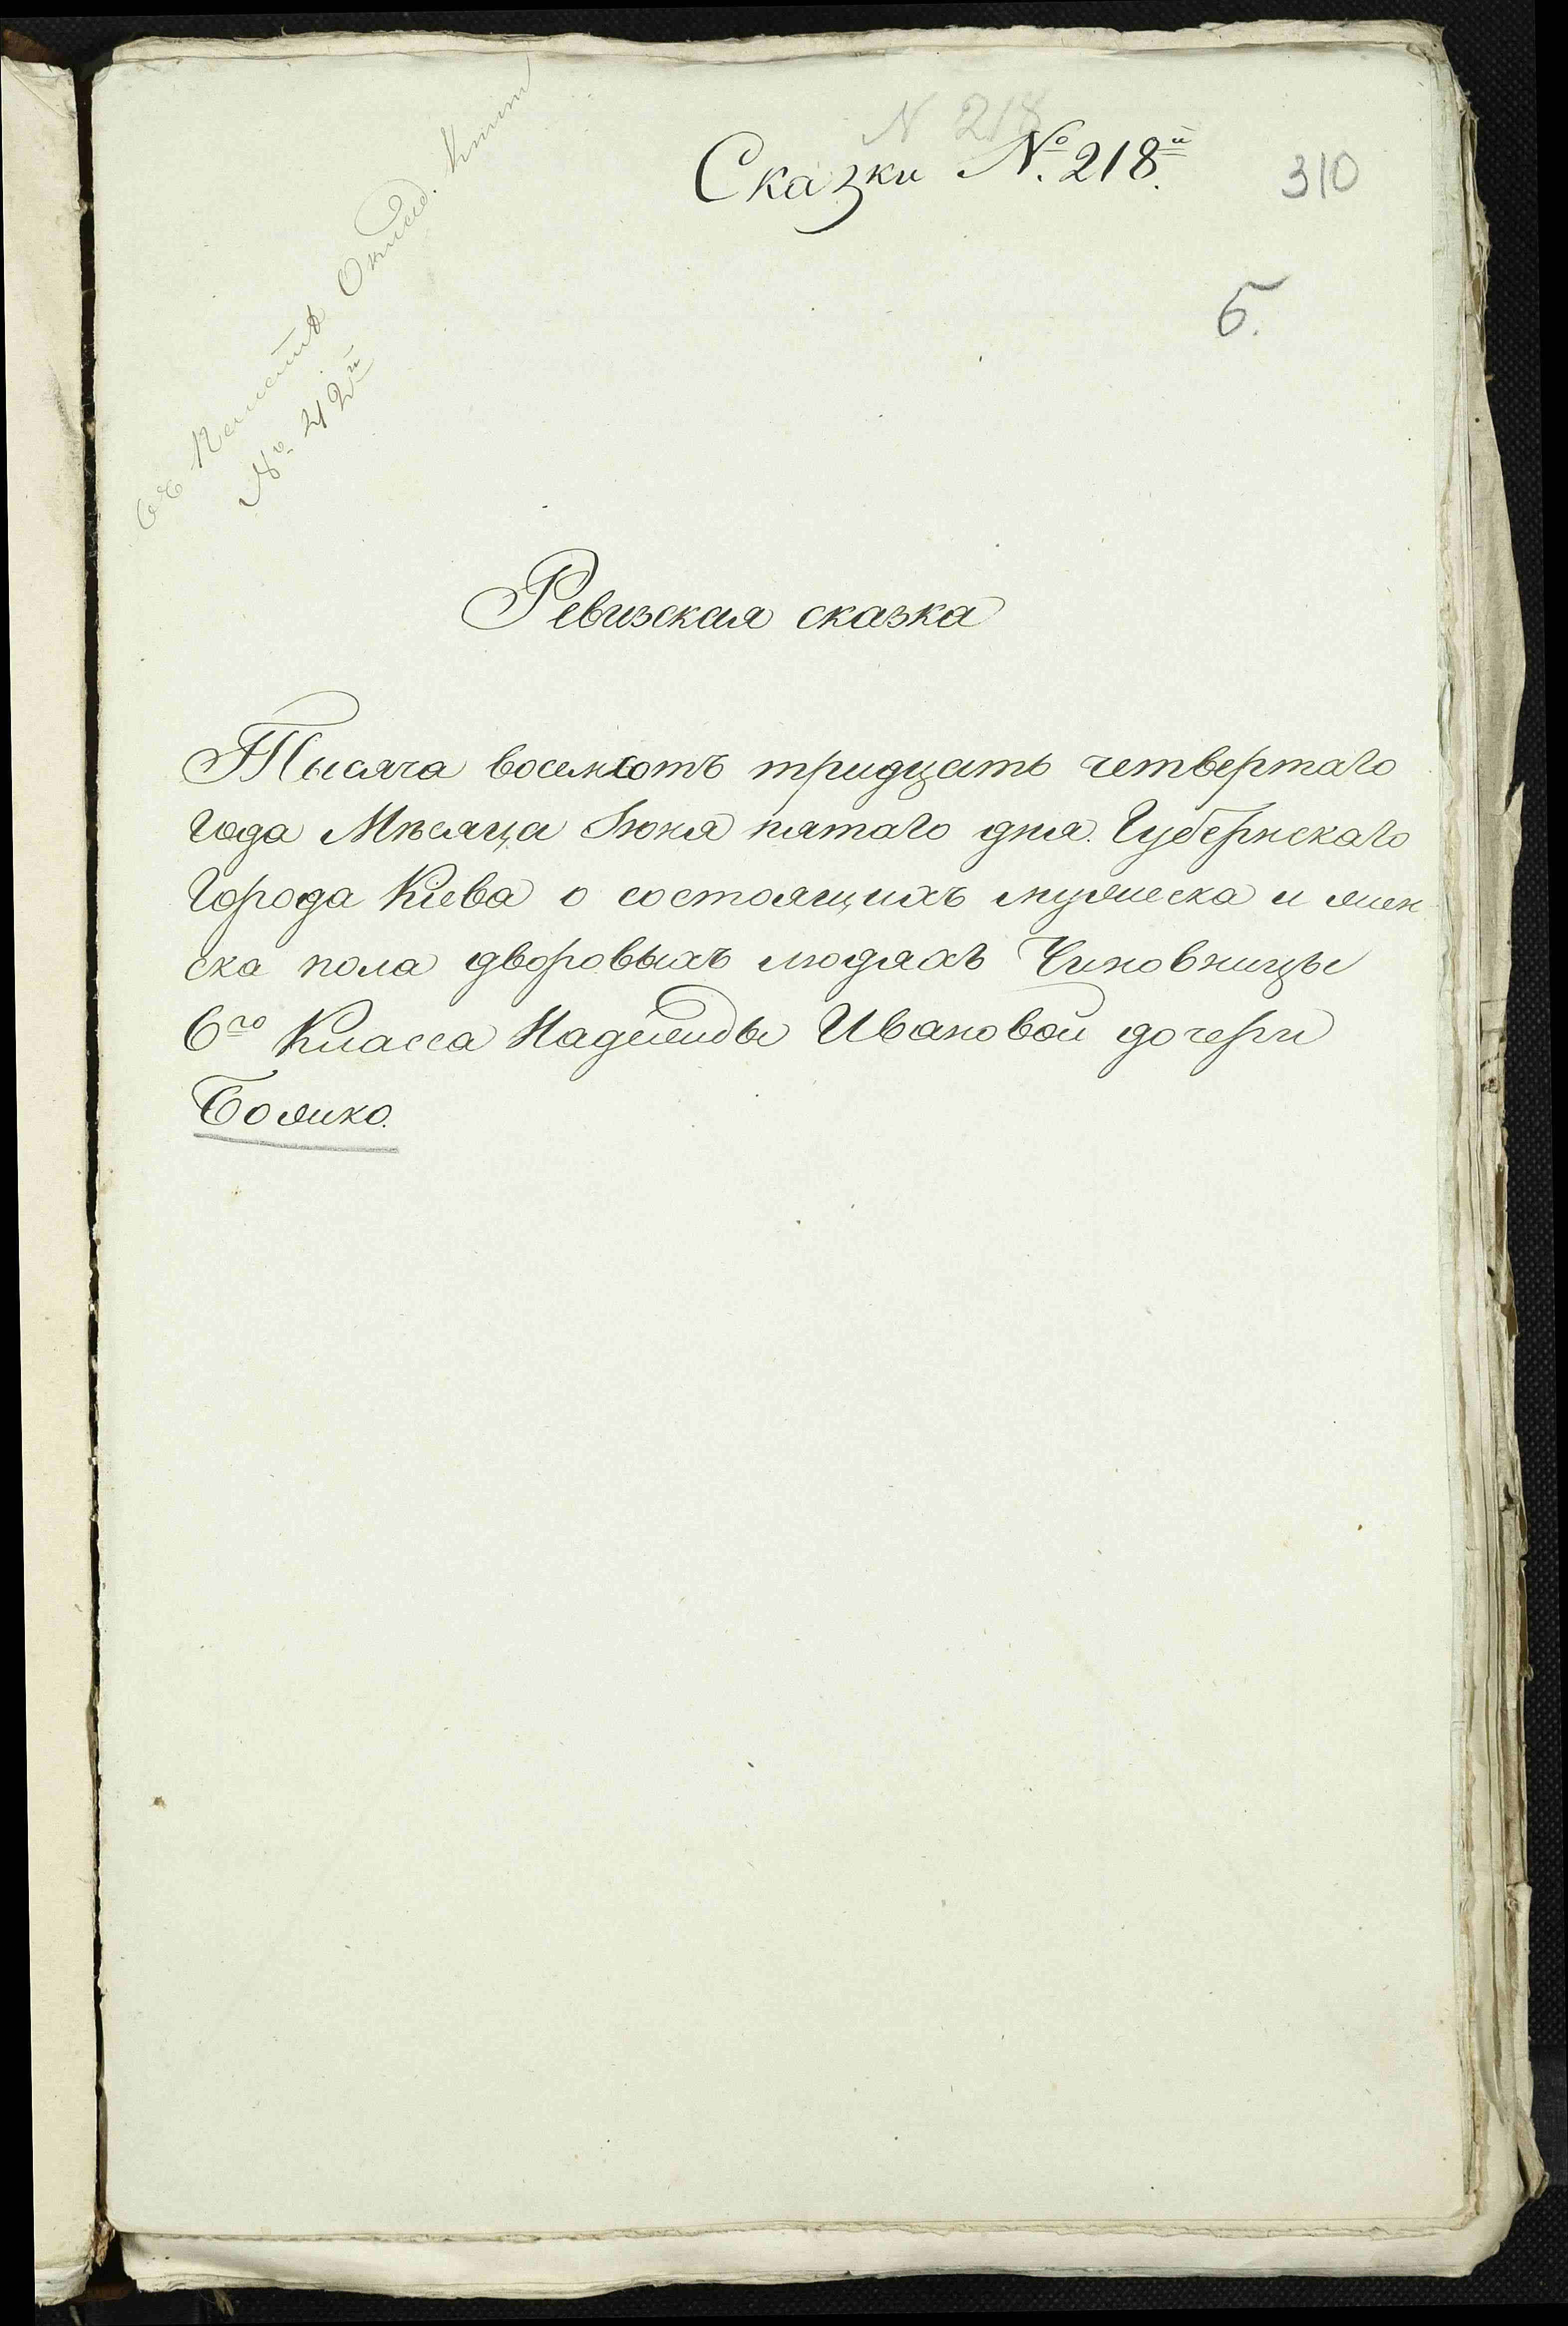 N 218
Сказки №. 218й.
310
б.
№ 212й
Ревизская сказка
Тысяча восемсотъ тридцать четвертаго
года Мѣсяца Іюня пятаго дня. Губернскаго
Города Кіева о состоящихъ мужеска и жен
ска пола дворовыхъ людяхъ Чиновницы
6го Класса Надежды Ивановой дочери
Божко.